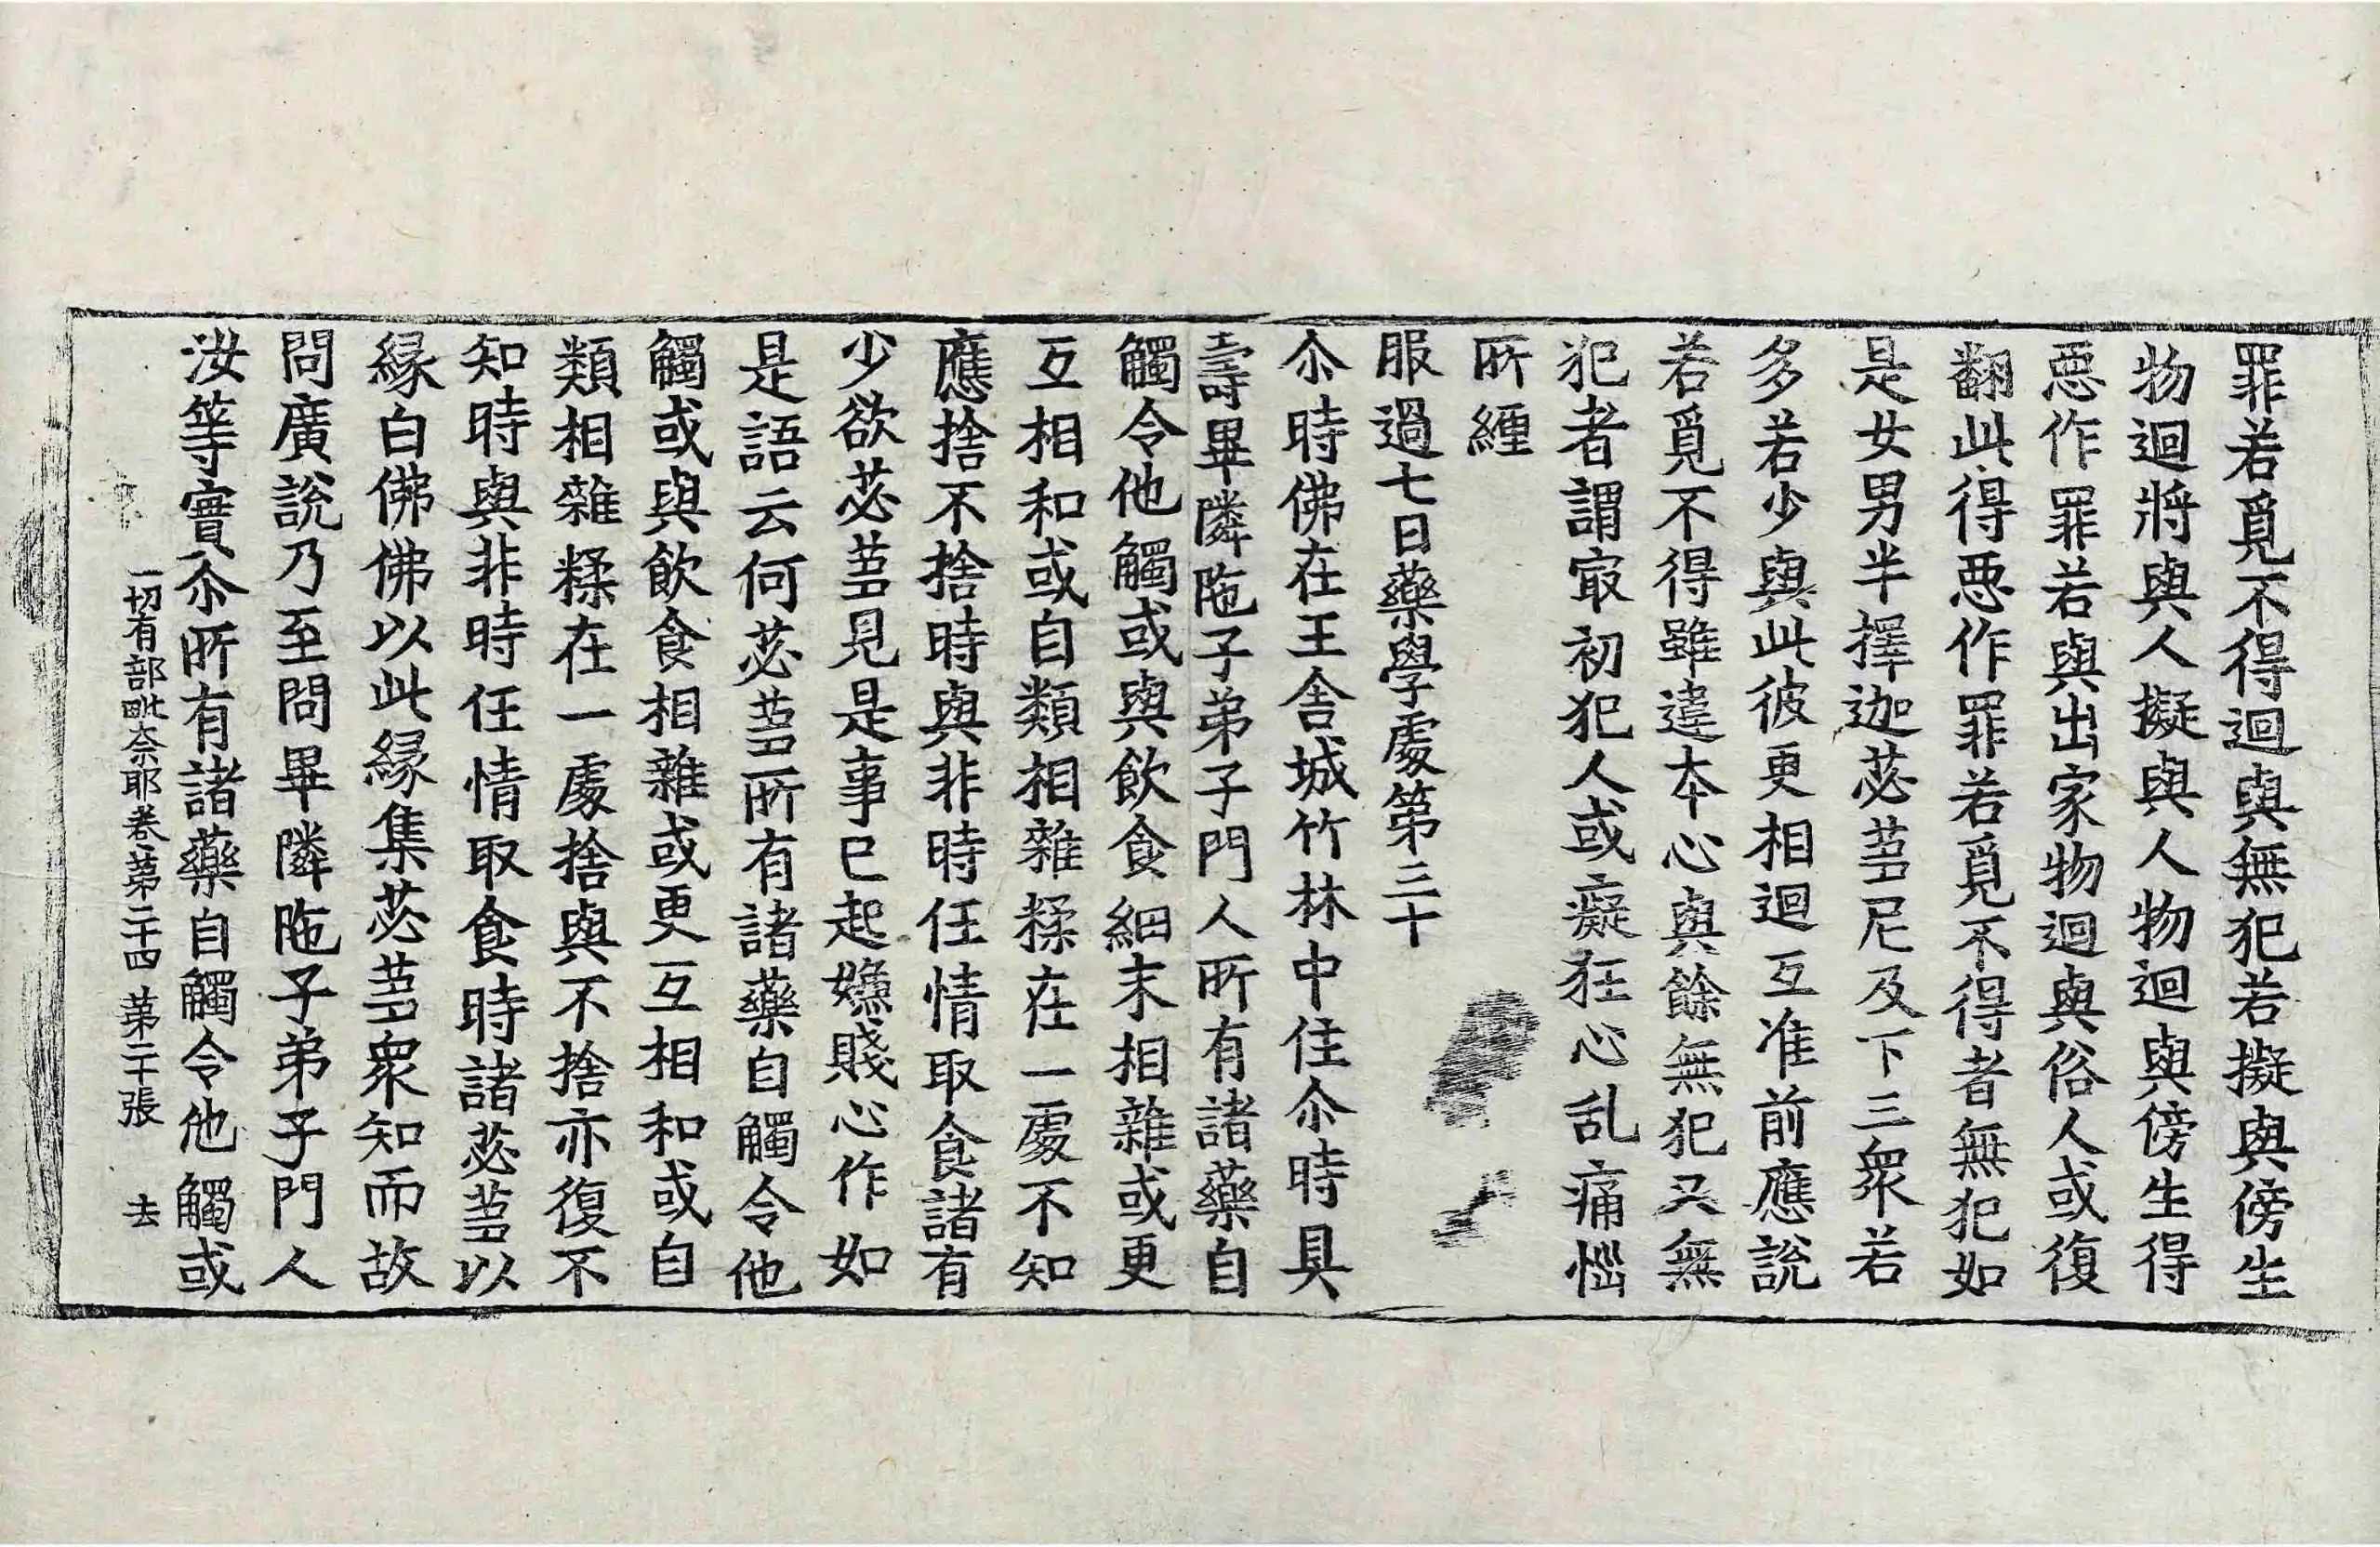 罪若覓不得迴與無犯若擬與傍生
物迴將與人擬與人物迴與傍生得
惡作罪若與出家物迴與俗人或復
翻此得惡作罪若覓不得者無犯如
是女男半擇迦苾蒭尼及下三衆若
多若少與此彼更相迴互准前應說
若覓不得雖違本心與餘無犯又無
犯者謂㝡初犯人或癡狂心乱痛惱
所纏
服過七日藥學處第三十
尒時佛在王舍城竹林中住尒時具
壽畢隣陁子弟子門人所有諸藥自
觸令他觸或與飲食細末相雜或更
互相和或自類相雜糅在一處不知
應捨不捨時與非時任情取食諸有
少欲苾蒭見是事已起嫌賤心作如
是語云何苾蒭所有諸藥自觸令他
觸或與飲食相雜或更互相和或自
類相雜糅在一處捨與不捨亦復不
知時與非時任情取食時諸苾蒭以
緣白佛佛以此緣集苾蒭衆知而故
問廣說乃至問畢隣陁子弟子門人
汝等實尒所有諸藥自觸令他觸或
一切有部毗奈耶卷第二十四 第二十張 去